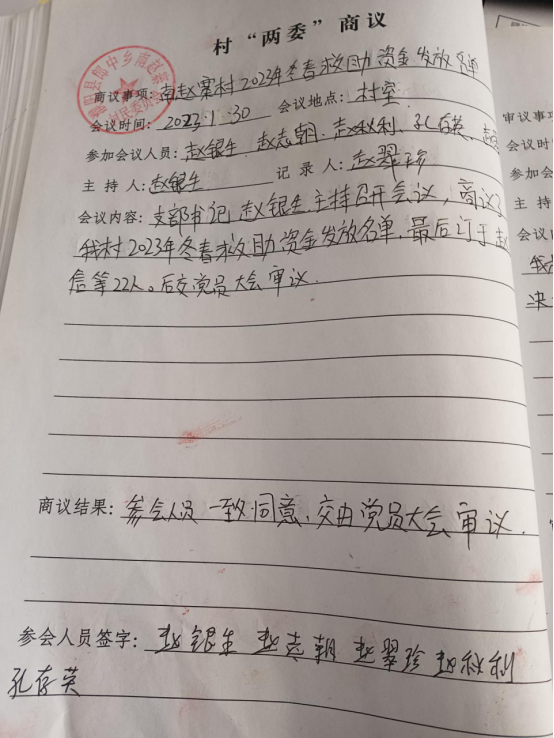 村“两委”商议
商议事项：南赵寨村2023年冬春救助资金发放名单
会议时间：2023.1.30 会议地点：村室
参加会议人员：赵银生、赵志朝、赵秋利、孔存英、赵
主持人：赵银生 记录人：赵翠珍
会议内容：支部书记赵银生主持召开会议，商议了
我村2023年冬春救助资金发放名单，最后订于赵
信等22人。后交党员大会审议.
商议结果：参会人员一致同意、交由党员大会审议.
参会人员签字：赵银生 赵志朝 赵翠珍 赵秋利
孔存英
审议事
会议时
参加会
主持
会议
我
决